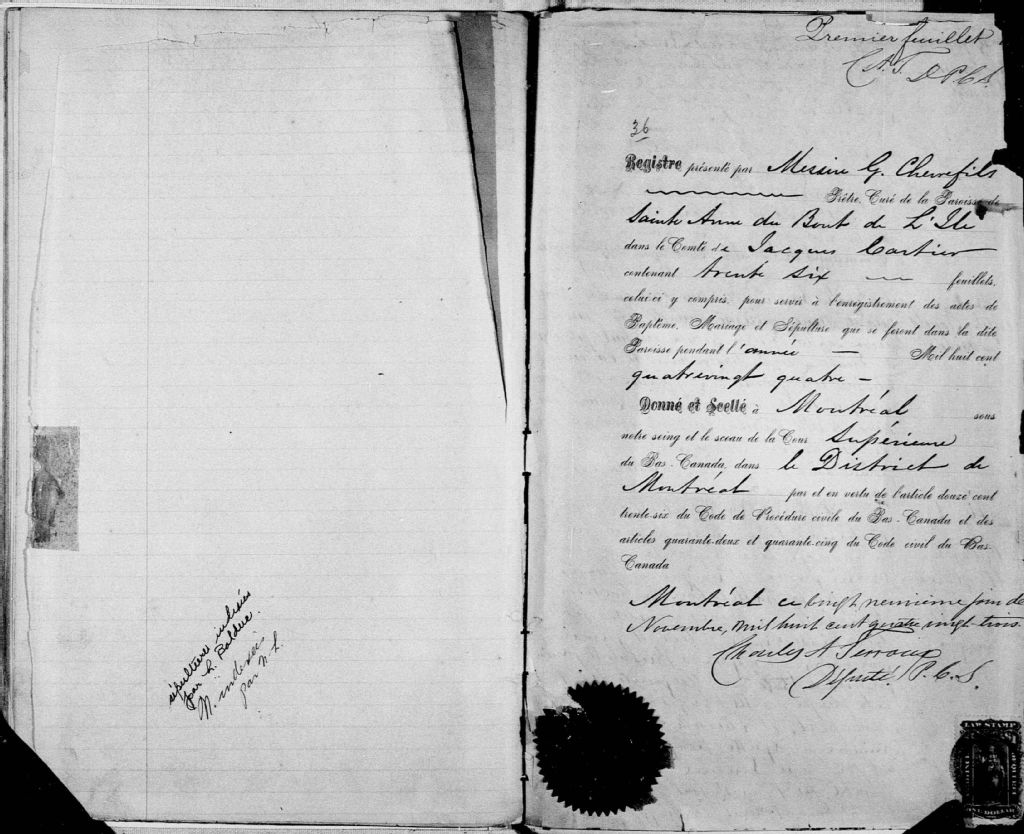 sépultures indexées
par L. Balduc.
M. indexé
par N. L.
Premier feuillet
C.A.T. D P.C.S.
36
Registre présenté par Messire G. Chevrefils
Prêtre, Curé de la Paroisse de
Sainte Anne du Bout de L'Ile
dans le Comté de Jacques Cartier
contenant trente six feuillets,
celui-ci y compris, pour servir à l'enregistrement des actes de
Baptême, Mariage et Sépulture qui se feront dans la dite
Paroisse pendant l'année — Mil huit cent
quatrevingt quatre —
Donné et Scellé à Montréal sous
notre seing et le sceau de la Cour Supérieure
du Bas-Canada, dans le District de
Montréal par et en vertu de l'article douze cent
trente-six du Code de Procédure civile du Bas-Canada et des
articles quarante-deux et quarante-cinq du Code civil du Bas-
Canada
Montréal ce vingt neuvième jour de
Novembre, mil huit cent quatre vingt-trois.
Charles A Terroux
Député P.C.S.
LAW STAMP
ONE DOLLAR